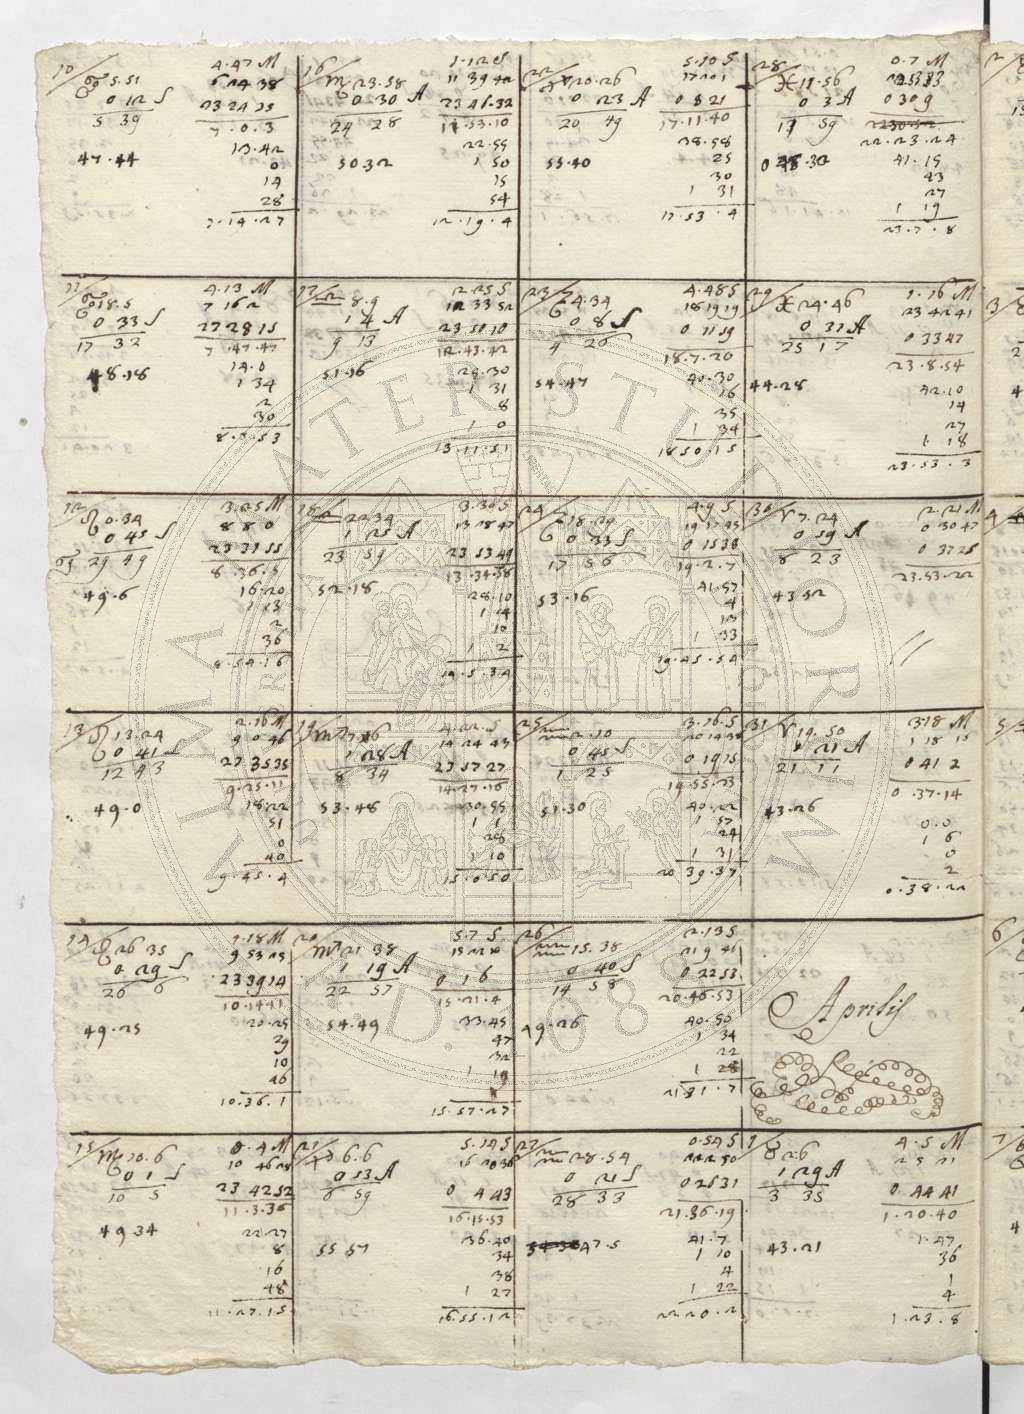 10/
4.47 M
♉ 5.51
0 12 S
5 39
23 24 25
7.0.3
47.44
13.42
0
14
28
7.14.27
16/
1.12 S
♏ 23.58
11 39 42
0.30 A
23 41.32
24 28
11.53.10
50 32
22.55
1 50
15
54
12.19.4
22/
5.10 S
20.26
0 23 A
0 8 21
20 49
17.11.40
55.40
38.58
25
30
1 31
17.53.4
28/
0.7 M
♓ 11.56
0 3 A
0 30 9
11 59
22.23.24
41.15
43
27
1 19
23.7.8
11/
4.13 M
18.5
7 16 2
0 33 S
17 32
7.47.47
48.18
14.0
1 34
2
30
8.3.53
17/
2.25 S
♎ 8.9
12 33 52
1 4 A
23 50 10
9 13
12.43.42
51.16
29.30
1 31
8
1 0
13.11.51
23/
4.48 S
4.34
18 19 19
0 8 S
0 11 59
4 26
18.7.20
54.47
40.30
16
35
1 34
18 50.15
29/
1.16 M
♓ 24.46
23 42 41
0 31 A
0 33 47
25 17
23.8.54
44.28
42.10
14
27
1 18
23.53.3
12/
3.25 M
♌ 0.34
8 8 0
0 45 S
23 31 55
29 49
8.36.5
49.6
16.20
1 13
2
36
8.54.16
18/
3.30 S
♎ 22 34
13 28 47
1 25 A
23 53 49
23 59
13.34.38
52.18
28.10
1 4
10
1 2
24/
4.9 S
18.29
0 33 S
0 15 38
17 56
19.2.7
53.16
41.57
4
13
1 33
19.45.54
30/
2.21 M
♈ 7.24
0 30 47
0 59 A
0 37 25
8 23
23.53.22
43 52
13/
2.16 M
♌ 13.24
9 0 46
0 41 S
23 35 35
12 43
9.25.11
49.0
18.22
51
0
40
9.45.4
19/
4.22.S
14 24 43
1 28 A
23 57 27
8 34
14.27.16
53.48
30.55
1 1
28
1 10
15.0.50
25/
3.16.S
♒ 2.10
0 45 S
0 19 15
1 25
19.55.23
51.30
40.22
1 57
24
1 31
20 39.37
31/
3 18 M
♈ 19.50
1 18 15
1 21 A
0 41 2
21 11
0.37.14
43.26
0.0
1 6
0
2
0.38.22
14/
1.18 M
26 35
9 53 23
0 29 S
23 39 14
26 6
10.14 41
49.25
20.25
29
10
26
10.36.1
20/
5.7 S
♏ 21 38
1 19 A
0 1 6
22 57
15.21.4
54.49
33.45
47
32
1 19
15.57.27
26/
2.13 S
♒ 15.38
21 9 41
0 40 S
0 22 53
14 58
20.46.53
49.26
40.50
1 34
22
1 28
21 31.7
Aprilis
15/
0.4 M
♍ 10.6
0 1 S
23 42 52
10 5
11.3.36
49 34
22.27
8
16
48
11.27.15
21/
5.14 S
6.6
0 53 A
0 4 43
6 59
16.15.53
55 57
36.40
34
38
1 27
16.55.12
27/
0.54 S
♒ 28.54
0 21 S
0 26 31
28 33
21.36.19
47.5
41.7
1 10
4
1 22
22 20.2
1/
4.5 M
♉ 2 6
1 29 A
0 44 41
3 35
1.20.40
43.21
1.47
36
1
4
1.23.8